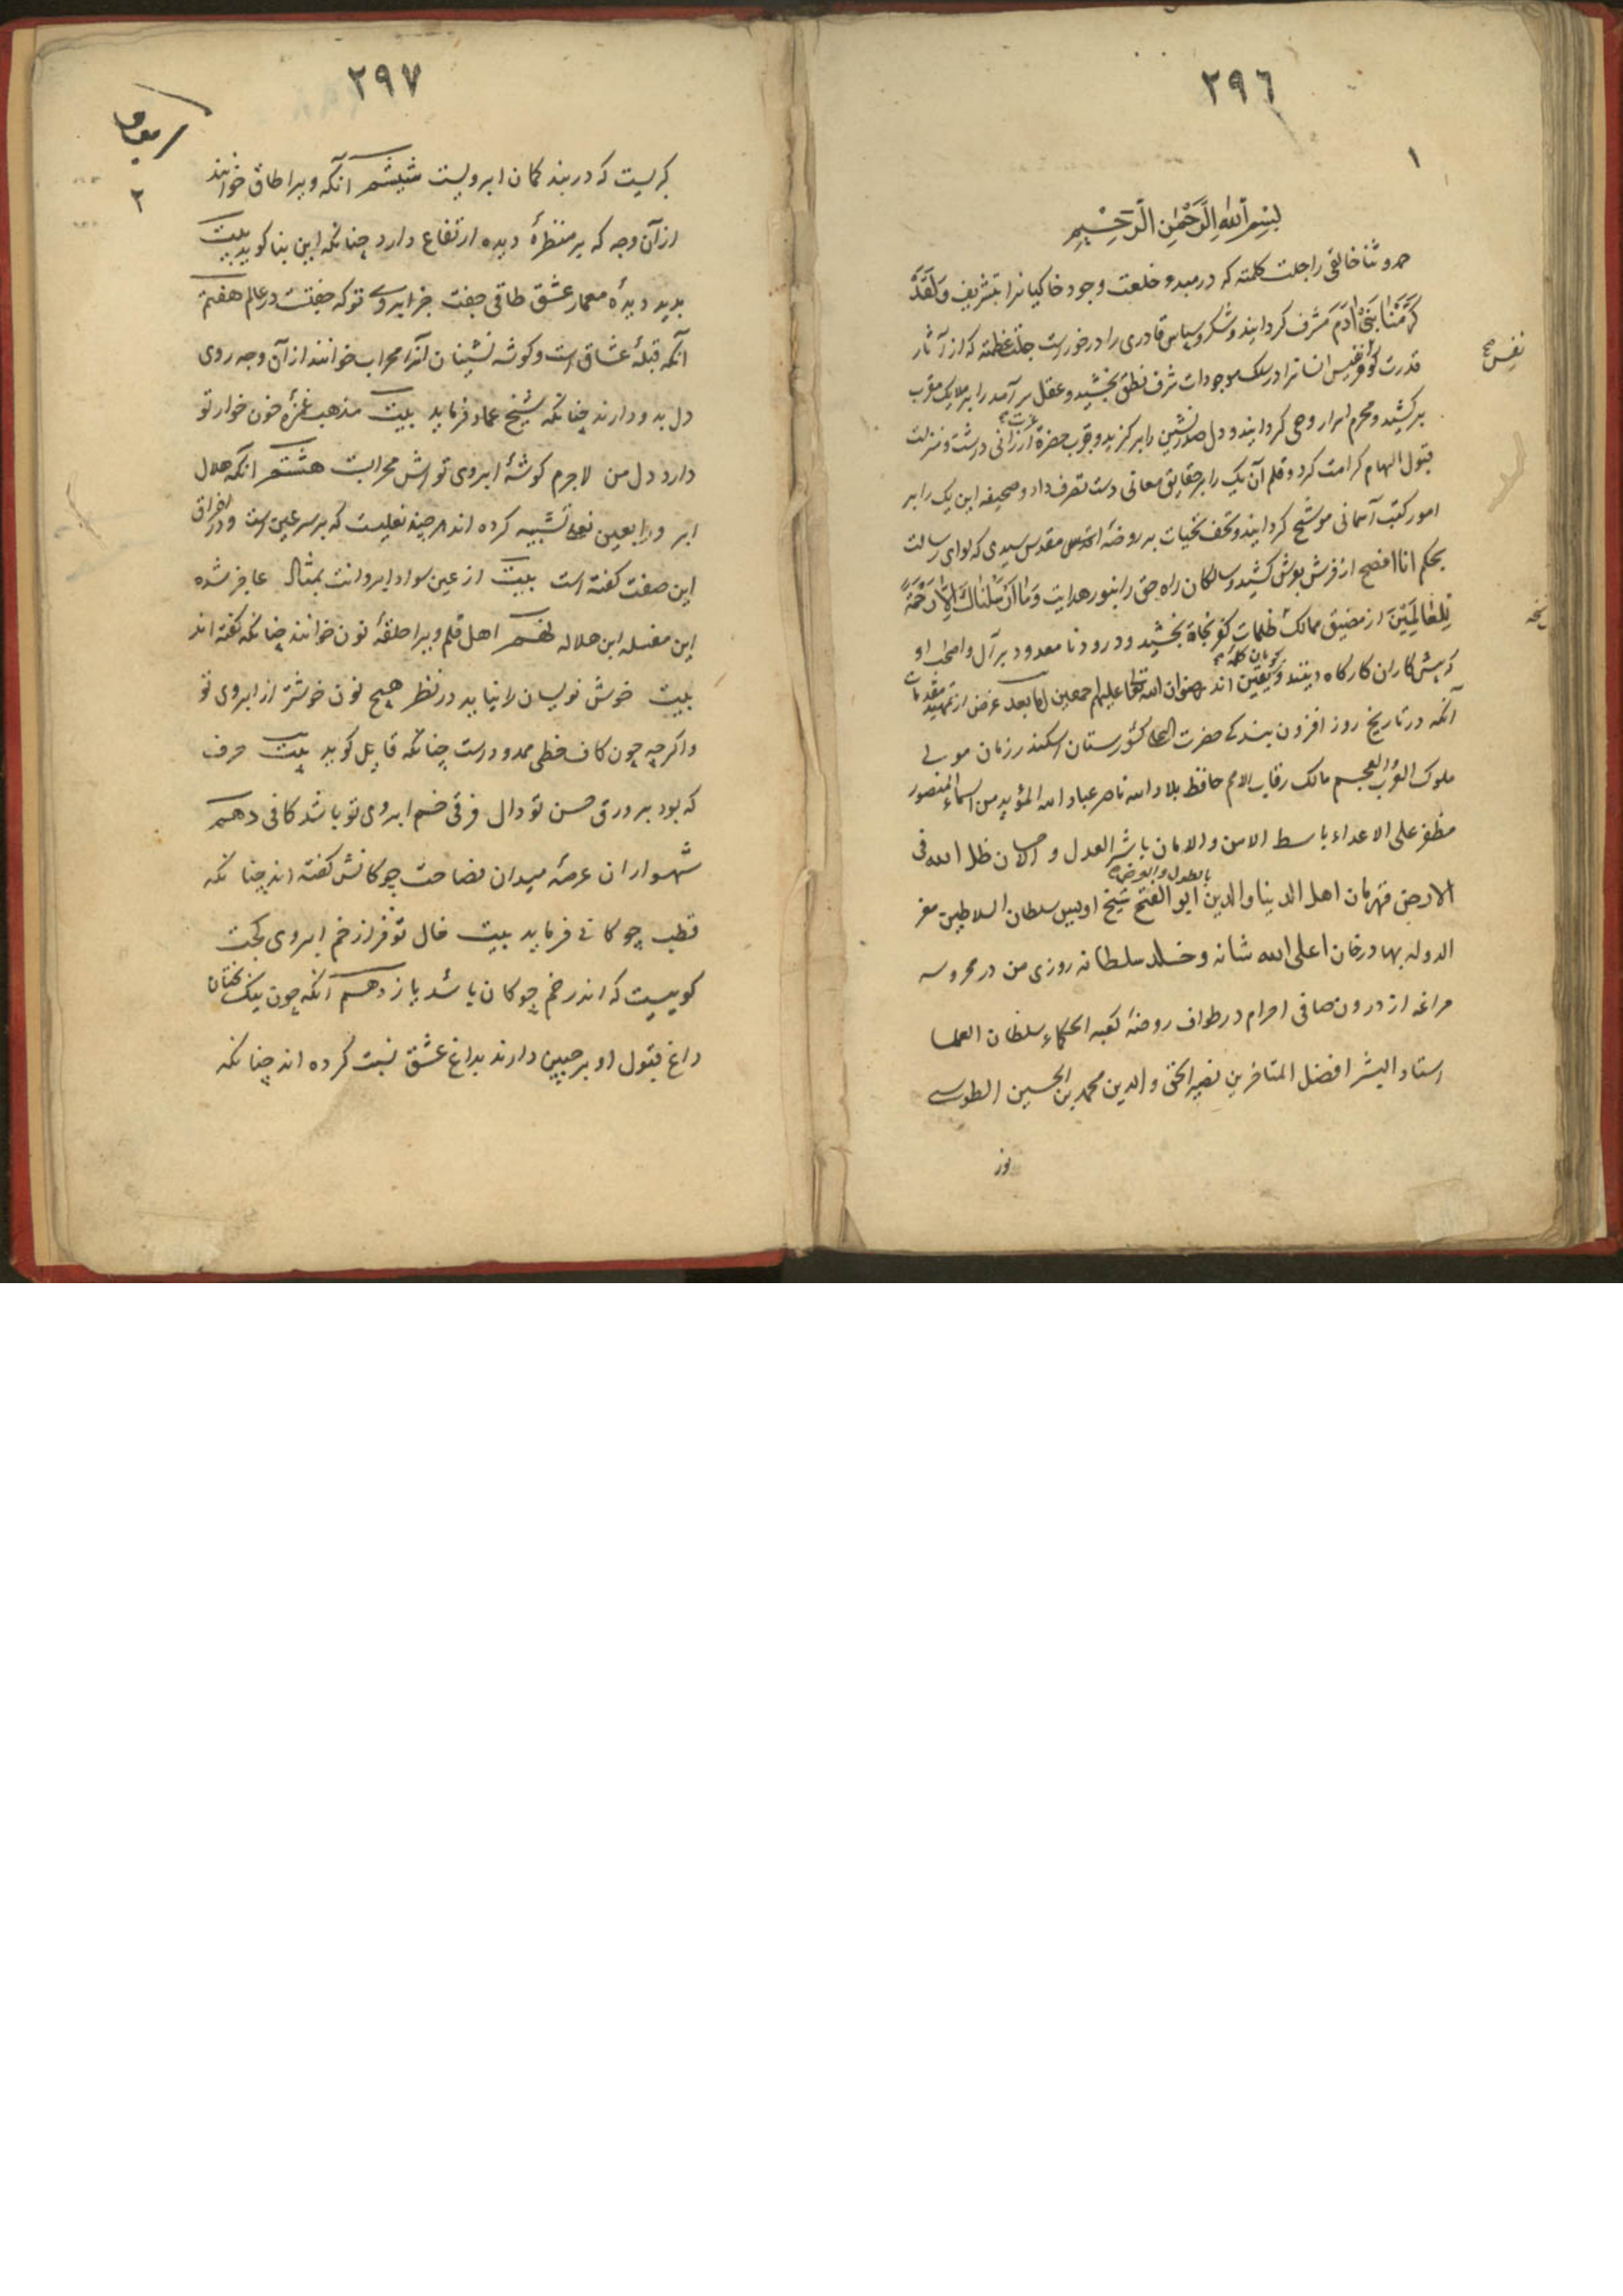 ٢٩٦
١
بسم الله الرحمن الرحیم
حمد و ثنا خالقی را جلت کلمته که در مبدو خلعت وجود خاکیانرا بتشریف وَلَقَدْ
كَرَّمْنَا بَنِی آدَمَ مشرف کردانید و شکر و سپاس قادری را در خورست جلت عظمته که از آثار
قدرت او نفیس انسانرا در سلک موجودات شرف نطق بخشید و عقل سرآمد را بر ملایک مقرب
نفس
برکشید و محرم اسرار وحی کردانید و دل صدرنشین را برکزید و بقرب حضرة عزت ارزانی داشت و منزلت
قبول الهام کرامت کرد و قلم آن یک را بر حقایق معانی دست تصرف داد و صحیفه این یک را بر
امور کتب آسمانی موشح کردانید و تحف تحیات بر روضهٔ مقدس سیدی که لوای رسالت
بحکم انا افصح از فرش بعرش کشید و سالکان راه حق را بنور هدایت وَمَا أَرْسَلْنَاكَ إِلَّا رَحْمَةً
لِلْعَالَمِینَ از مضیق ممالک ظلمات کفر نجاة بخشید و درود نامعدود بر آل و اصحاب او
که پیش کاران کارکاه دینند و یقین اند رضوان الله تعالی علیهم اجمعین اما بعد غرض از تمهید مقدمات
آنکه در تاریخ روز افزون بندکی حضرت اعلی کشورستان اسکندر زمان مولی
ملوک العرب والعجم مالک رقاب الامم حافظ بلاد الله ناصر عباد الله المؤید من السماء المنصور
مظفر علی الاعداء باسط الامن والامان ناشر العدل و الاحسان ظل الله فی
الارض بالطول والعرض قهرمان اهل الدنیا والدین ابو الفتح شیخ اویس سلطان السلاطین معز
الدوله بهادرخان اعلی الله شانه و خلد سلطانه روزی من در محروسه
مراغه از درون صافی احرام در طواف روضهٔ کعبه الحکماء سلطان العلما
استاد البشر افضل المتاخرین نصیر الحق والدین محمد بن الحسین الطوسی
نور
٢٩٧
٢
کریست که در بند کمان ابرویست ششم آنکه ویرا طاق خوانند
از آن وجه که بر منظرهٔ دیده ارتفاع دارد چنانکه ابن بنا کوید بیت
بدید دیدهٔ معمار عشق طاقی جفت جز ابروی تو که جفتست در عالم هفتم
آنکه قبلهٔ عشاق است و کوشه نشینان آنرا محراب خوانند از آن وجه روی
دل بدو دارند چنانکه شیخ عماد فرماید بیت مذهب غمزهٔ خون خوار تو
دارد دل من لاجرم کوشهٔ ابروی تواش محرابست هشتم آنکه هلال
ابر و رابعین نعل تشبیه کرده اند هر چند نعلیست که بر سر عین است و در افراق
این صفت کفته است بیت از عین سواد ابروانت بمثال عاجز شده
ابن مقله ابن هلال نهم اهل قلم ویرا حلقهٔ نون خوانند چنانکه کفته اند
بیت خوش نویسان را نیاید در نظر هیچ نون خوشتر از ابروی تو
و اکرچه چون کاف خطی ممدودست چنانکه قایل کوید بیت حرف
که بود بر ورق حسن تو دال فرقی خم ابروی تو باشد کافی دهم
شهسواران عرصهٔ میدان فصاحت چوکانش کفته اند چنانکه
قطب چوکانی فرماید بیت خال تو فراز خم ابروی کجت
کوییست که اندر خم چوکان باشد یازدهم آنکه چون نیک بختان
داغ قبول او بر جبین دارند بداغ عشق نسبت کرده اند چنانکه